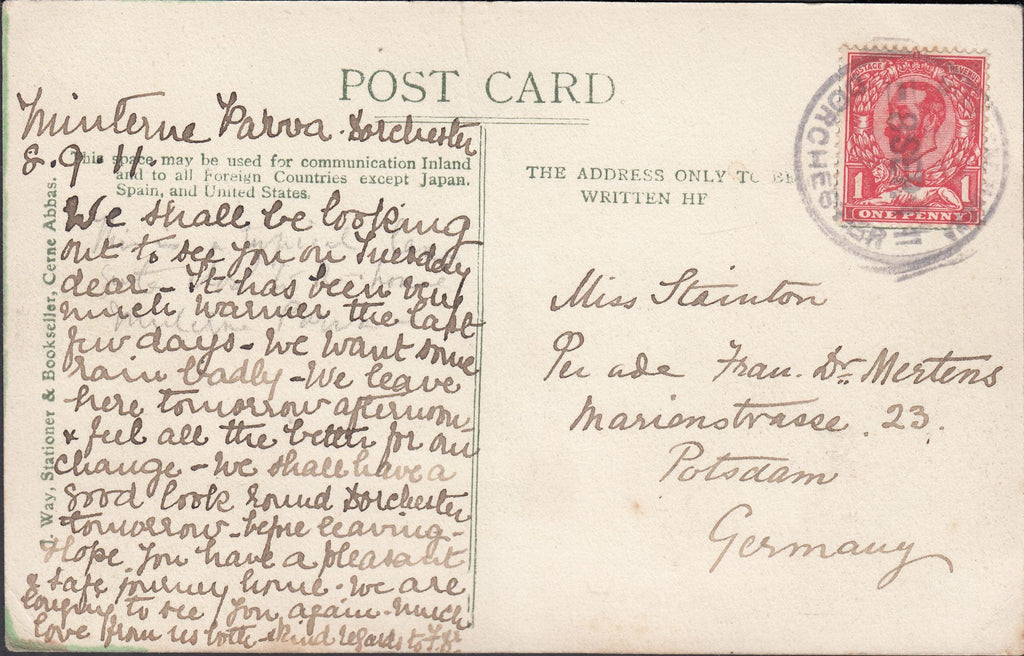 POST CARD
Minterne Parva. Dorchester
8. 9. 11
This space may be used for communication Inland
and to all Foreign Countries except Japan,
Spain, and United States.
We shall be looking
out to see you on Tuesday
dear - It has been very
much warmer the last
few days - We want some
rain badly - We leave
here tomorrow afternoon,
& feel all the better for our
change - We shall have a
good look round Dorchester
tomorrow before leaving -
Hope you have a pleasant
& safe journey home. We are
longing to see you again. Much
love from us both & kind regards to
J. Way, Stationer & Bookseller, Cerne Abbas.
THE ADDRESS ONLY TO BE
WRITTEN HE
POSTAGE REVENUE
1 1
ONE PENNY
DORCHESTER
Miss Stainton
Frau. Dr. Mertens
Marienstrasse. 23.
Potsdam
Germany